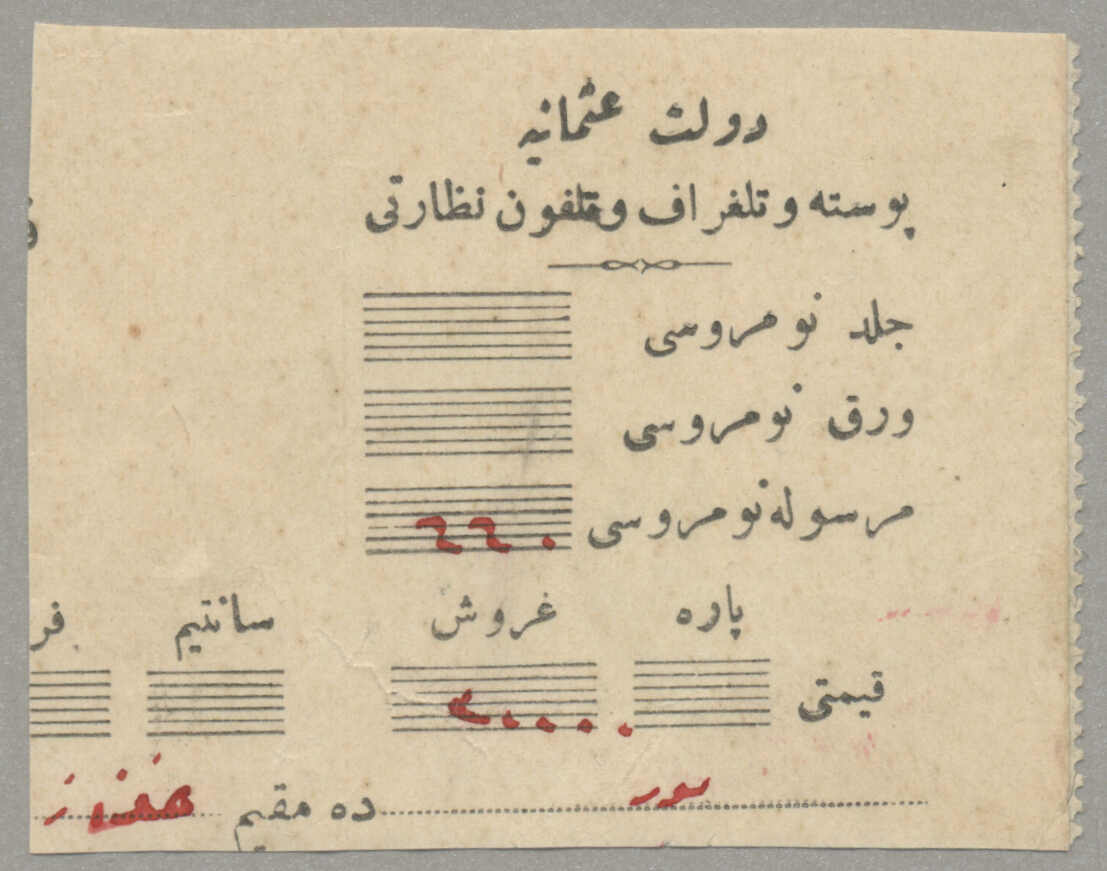 دولت عثمانيه
پوسته و تلغراف و تلفون نظارتى
جلد نومروسى
ورق نومروسى
مرسوله نومروسى ٦٦٠
پاره غروش سانتيم فر
قيمتى
ده مقيم